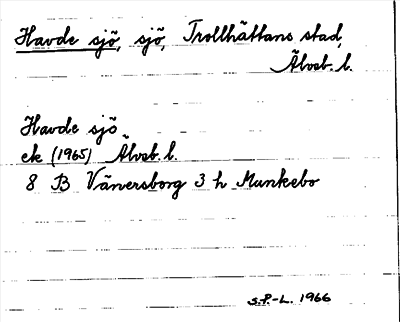 Havde sjö, sjö, Trollhättans stad,
Älvsb. l.
Havde sjö
ek (1965) Älvsb. l.
8 B Vänersborg 3 h Munkebo
S.P.-L. 1966